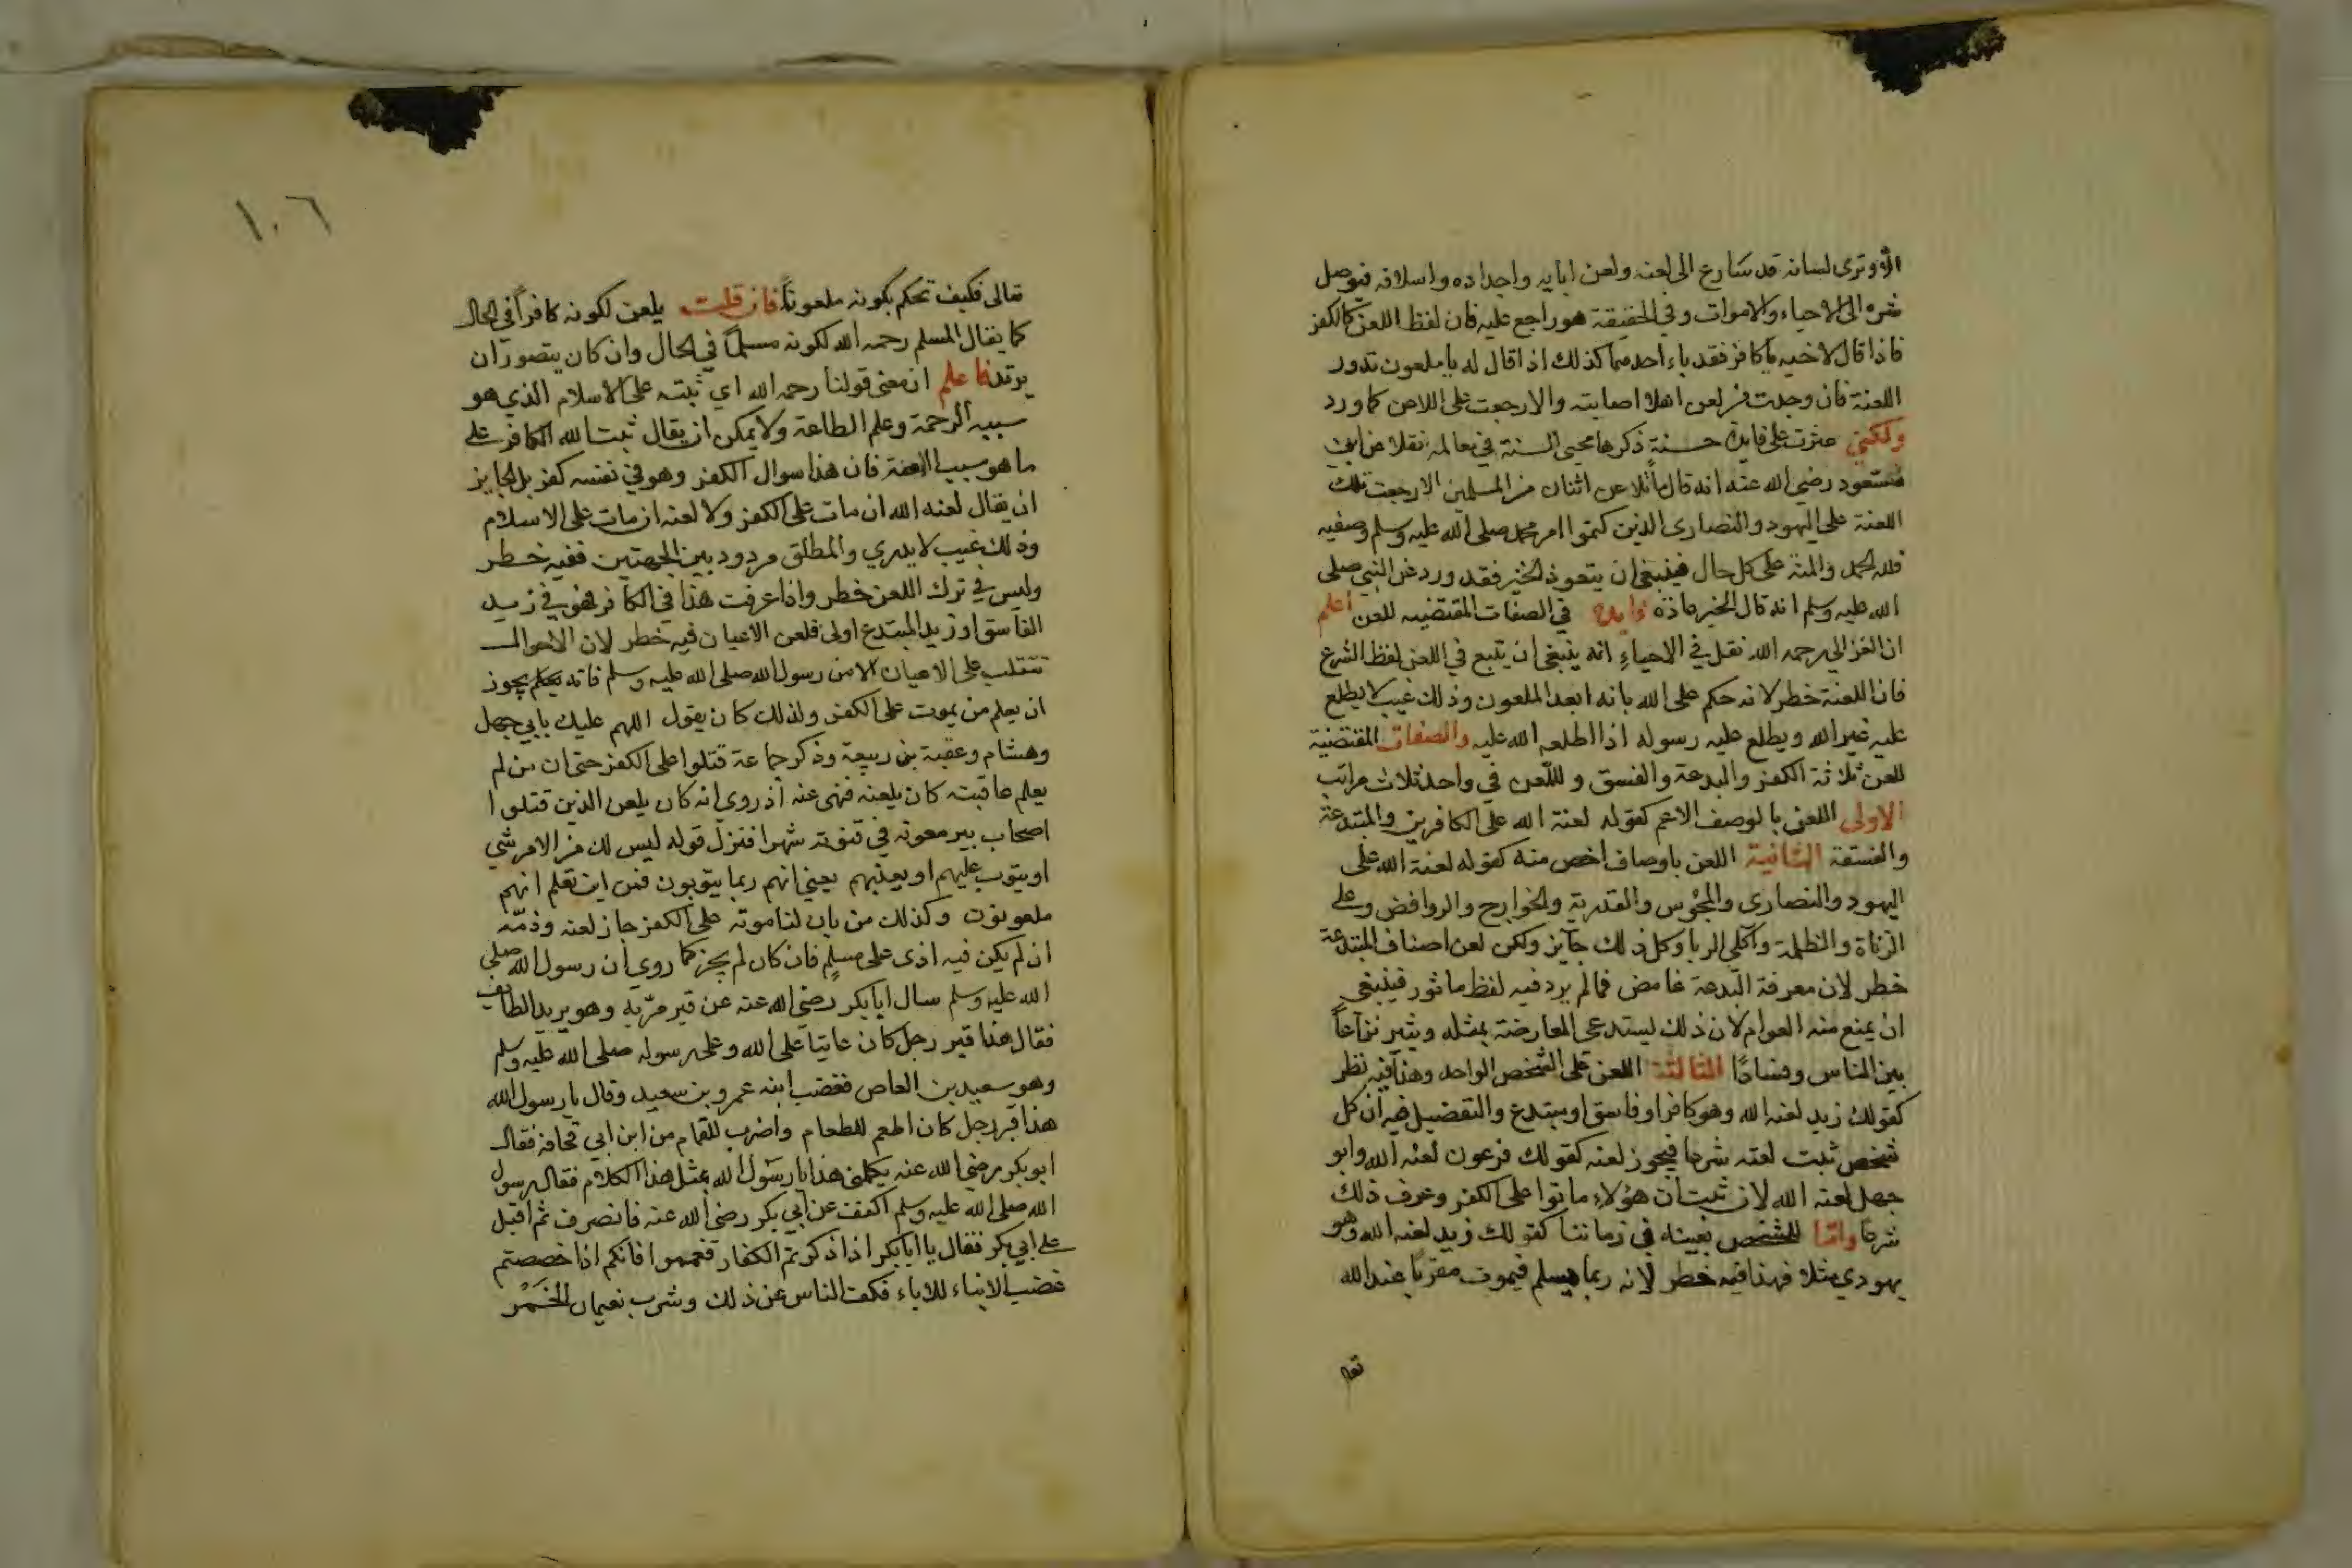 الا وترى لسانه قد سارع الى لعنه ولعن ابايه واجداده واسلافه فيوصل
شره الى الاحياء والاموات وفي الحقيقة هو راجع عليه فان لفظ اللعن كالكفر
فاذا قال لاخيه يا كافر فقد باء احدهما كذلك اذا قال له يا ملعون تدور
اللعنة فان وجدت من لعن اهلا اصابته والا رجعت على اللاعن كما ورد
ولكني عثرت على فايدة حسنة ذكرها محيى السنة في معالمه نقلا عن ابن
مسعود رضي الله عنه انه قال ما تلاعن اثنان من المسلمين الا رجعت تلك
اللعنة على اليهود والنصارى الذين كتموا امر محمد صلى الله عليه وسلم وصفيه
فلله الحمد والمنة على كل حال فينبغي ان يتعوذ الخير فقد ورد عن النبي صلى
الله عليه وسلم انه قال الخير عادة فايدة في الصفات المقتضيه للعن اعلم
ان الغزالي رحمه الله نقل في الاحياء انه ينبغي ان يتبع في اللعن لفظ الشرع
فان اللعنة خطر لانه حكم على الله بانه ابعد الملعون وذلك غيب لا يطلع
عليه غير الله ويطلع عليه رسوله اذا اطلعه الله عليه والصفات المقتضية
للعن ثلاثة الكفر والبدعة والفسق وللّعن في واحد ثلاث مراتب
الاولى اللعن بالوصف الاعم كقوله لعنة الله على الكافرين والمبتدعة
والفسقة الثانية اللعن باوصاف اخص منه كقوله لعنة الله على
اليهود والنصارى والمجوس والقدرية والخوارج والروافض وعلى
الزناة والظلمة وآكلي الربا وكل ذلك جآيز ولكن لعن اصناف المبتدعة
خطر لان معرفة البدعة غامض فما لم يرد فيه لفظ ماثور فينبغي
ان يمنع منه العوام لان ذلك يستدعى المعارضة بمثله ويثير نزآعاً
بين الناس وفسادًا الثالثة اللعن على الشخص الواحد وهذا فيه نظر
كقولك زيد لعنه الله وهو كافر او فاسق او مبتدع والتفضيل فيه ان كل
شخص ثبت لعنته شرعا فيجوز لعنه كقولك فرعون لعنه الله وابو
جهل لعنه الله لان ثبت ان هؤلاء ماتوا على الكفر وعرف ذلك
شرعا وامّا للشخص بعينه في زماننا كقولك زيد لعنه الله وهو
يهودي مثلا فهذا فيه خطر لانه ربما يسلم فيموت مقربًا عند الله
تعا
١٠٦
تعالى فكيف تحكم بكونه ملعوناً فان قلت يلعن لكونه كافراً في الحال
كما يقال للمسلم رحمه الله لكونه مسلماً في الحال وان كان يتصور ان
يرتد فاعلم ان معنى قولنا رحمه الله اي ثبته على الاسلام الذي هو
سبب الرحمة وعلم الطاعة ولا يمكن ان يقال ثبت الله الكافر على
ما هو سبب اللعنة فان هذا سوال الكفر وهو في نفسه كفر بل الجايز
ان يقال لعنه الله ان مات على الكفر ولا لعنه ان مات على الاسلام
وذلك غيب لا يدري والمطلق مردود بين الجهتين ففيه خطر
وليس في ترك اللعن خطر واذا عرفت هذا في الكافر فهو في زيد
الفاسق او زيد المبتدع اولى فلعن الاعيان فيه خطر لان الاحوال
تتقلب على الاعيان الا من رسول الله صلى الله عليه وسلم فانه يعلم يجوز
ان يعلم من يموت على الكفر ولذلك كان يقول اللهم عليك بابي جهل
وهشام وعقبة بن ربيعة وذكر جماعة قتلوا على الكفر حتى ان من لم
يعلم عاقبته كان يلعنه فنهى عنه اذ روى انه كان يلعن الذين قتلوا
اصحاب بير معونه في قنوته شهرا فنزل قوله ليس لك من الامر شي
او يتوب عليهم او يعذبهم يعني انهم ربما يتوبون فمن اين تعلم انهم
ملعونون وكذلك من بان لنا موته على الكفر جاز لعنه وذمّه
ان لم يكن فيه اذى على مسلم فان كان لم يجز كما روي ان رسول الله صلى
الله عليه وسلم سال ابا بكر رضي الله عنه عن قبر مرّ به وهو يريد الطايف
فقال هذا قبر رجل كان عاتيا على الله وعلى رسوله صلى الله عليه وسلم
وهو سعيد بن العاص فغضب ابنه عمرو بن سعيد وقال يا رسول الله
هذا قبر رجل كان اطعم للطعام واضرب للهام من ابن ابي قحافة فقال
ابو بكر رضي الله عنه يكلمني هذا يا رسول الله بمثل هذا الكلام فقال رسول
الله صلى الله عليه وسلم اكفف عن ابي بكر رضي الله عنه فانصرف ثم اقبل
على ابي بكر فقال يا ابا بكر اذا ذكرتم الكفار فعمموا فانكم اذا خصصتم
غضب الابناء للاباء فكف الناس عن ذلك وشرب نعيمان الخمر